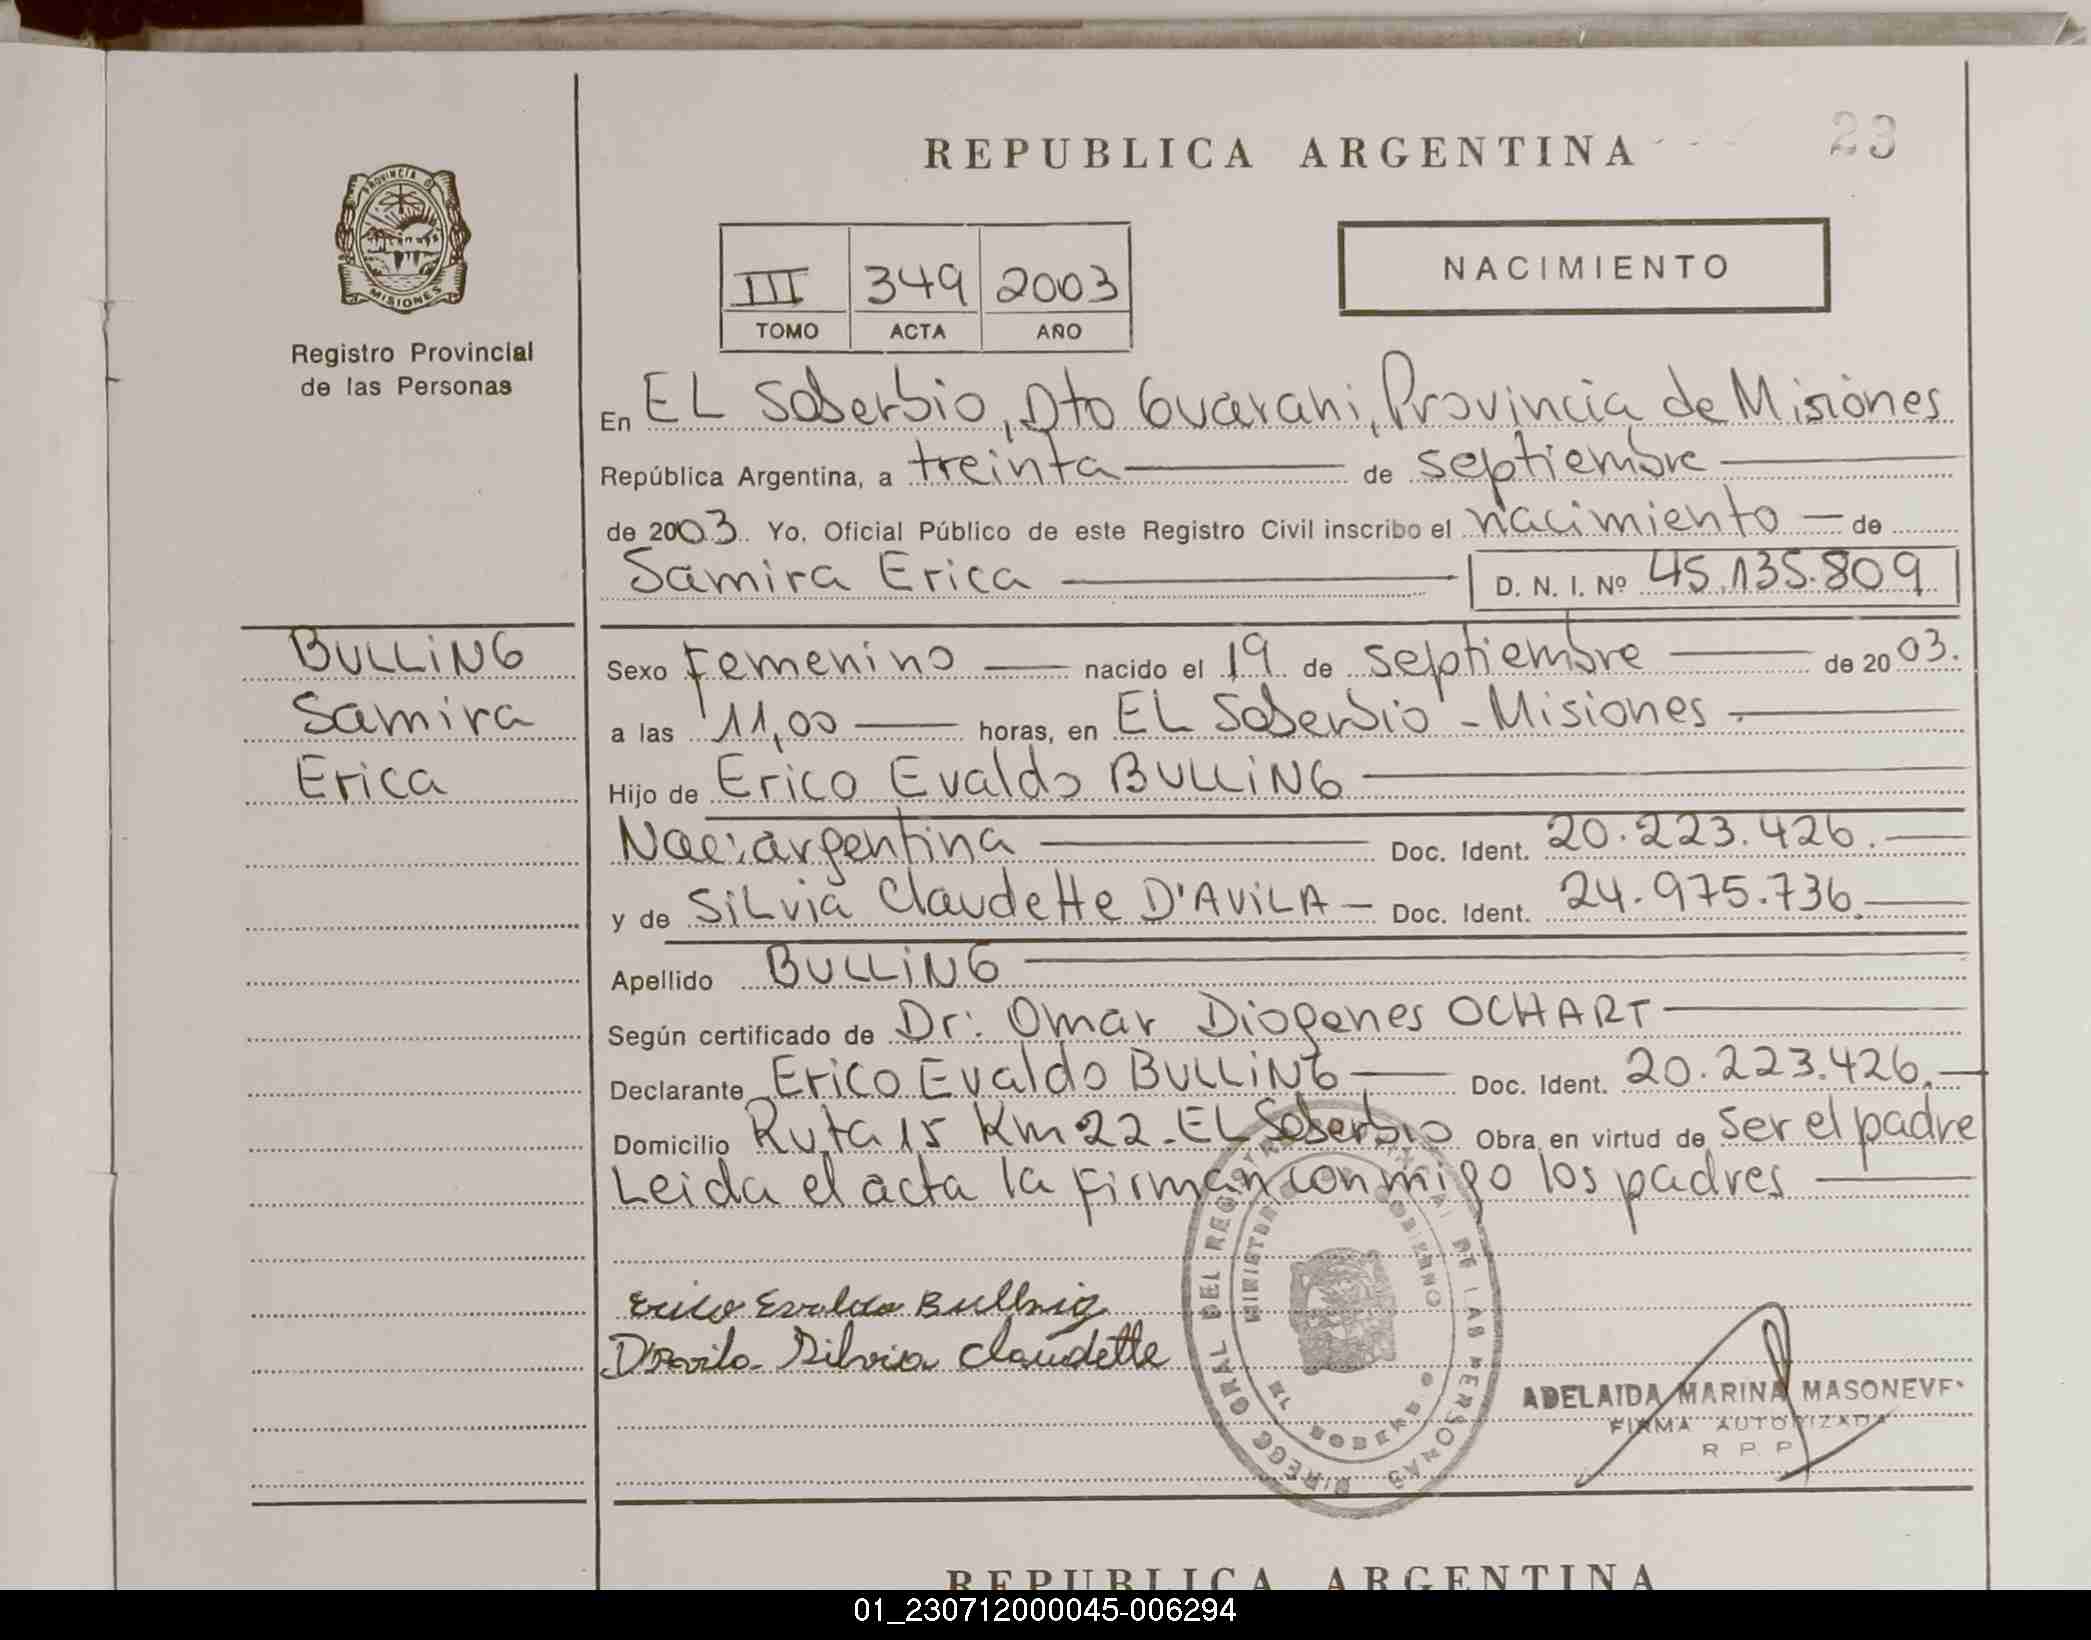 REPUBLICA ARGENTINA
23
PROVINCIA D
MISIONES
Registro Provincial
de las Personas
III 349 2003
TOMO ACTA AÑO
NACIMIENTO
En EL Soberbio, Dto Guarani, Provincia de Misiones
República Argentina, a treinta de septiembre
de 2003. Yo, Oficial Público de este Registro Civil inscribo el nacimiento de
Samira Erica D. N. I. Nº 45.135.809
BULLING
Samira
Erica
Sexo Femenino nacido el 19 de septiembre de 2003.
a las 11,00 horas, en EL Soberbio - Misiones
Hijo de Erico Evaldo BULLING
Nac: argentina Doc. Ident. 20.223.426.
y de SiLvia Claudette D'AViLA Doc. Ident. 24.975.736.
Apellido BULLING
Según certificado de Dr: Omar Diogenes OCHART
Declarante Erico Evaldo BULLING Doc. Ident. 20.223.426.
Domicilio Ruta 15 Km 22 - EL Soberbio Obra en virtud de ser el padre
Leida el acta la firman conmigo los padres
Erico Evaldo Bulling
D'Avila Silvia Claudette
DIRECC GRAL DEL REGISTRO DE LAS PERSONAS
MINISTERIO GOBIERNO
ADELAIDA MARINA
FIRMA AUTORIZADA
R. P. P.
REPUBLICA ARGENTINA
01_230712000045-006294